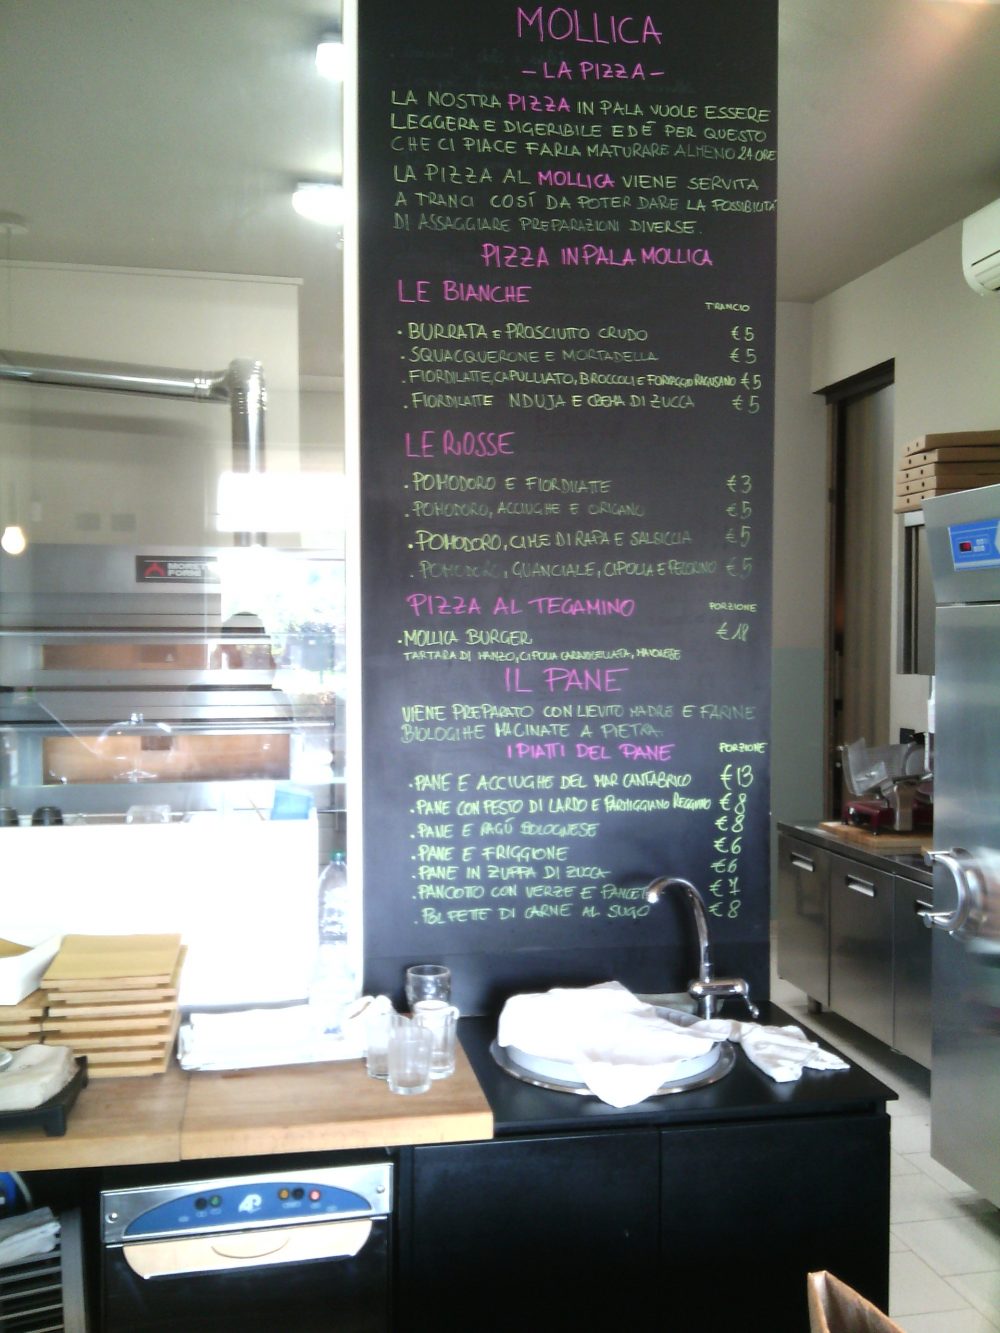 MOLLICA
- LA PIZZA -
LA NOSTRA PIZZA IN PALA VUOLE ESSERE
LEGGERA E DIGERIBILE ED É PER QUESTO
CHE CI PIACE FARLA MATURARE ALMENO 24 ORE
LA PIZZA AL MOLLICA VIENE SERVITA
A TRANCI COSÍ DA POTER DARE LA POSSIBILITA'
DI ASSAGGIARE PREPARAZIONI DIVERSE.
PIZZA IN PALA MOLLICA
LE BIANCHE
TRANCIO
• BURRATA E PROSCIUTTO CRUDO €5
• SQUACQUERONE E MORTADELLA €5
• FIORDILATTE, CAPULLIATO, BROCCOLI E FORMAGGIO RAGUSANO €5
• FIORDILATTE NDUJA E CREMA DI ZUCCA €5
LE ROSSE
• POMODORO E FIORDILATTE €3
• POMODORO, ACCIUGHE E ORIGANO €5
• POMODORO, CIME DI RAPA E SALSICCIA €5
• POMODORO, GUANCIALE, CIPOLLA E PECORINO €5
PIZZA AL TEGAMINO PORZIONE
• MOLLICA BURGER €18
TARTARA DI MANZO, CIPOLLA CARAMELLATA, MAIONESE
IL PANE
VIENE PREPARATO CON LIEVITO MADRE E FARINE
BIOLOGIHE MACINATE A PIETRA.
I PIATI DEL PANE PORZIONE
• PANE E ACCIUGHE DEL MAR CANTABRICO €13
• PANE CON PESTO DI LARDO E PARMIGGIANO REGGIANO €8
• PANE E RAGÚ BOLOGNESE €8
• PANE E FRIGGIONE €6
• PANE IN ZUPPA DI ZUCCA €6
• PANCOTTO CON VERZE E €7
• POLPETTE DI CARNE AL SUGO €8
MORETTI
FORNI